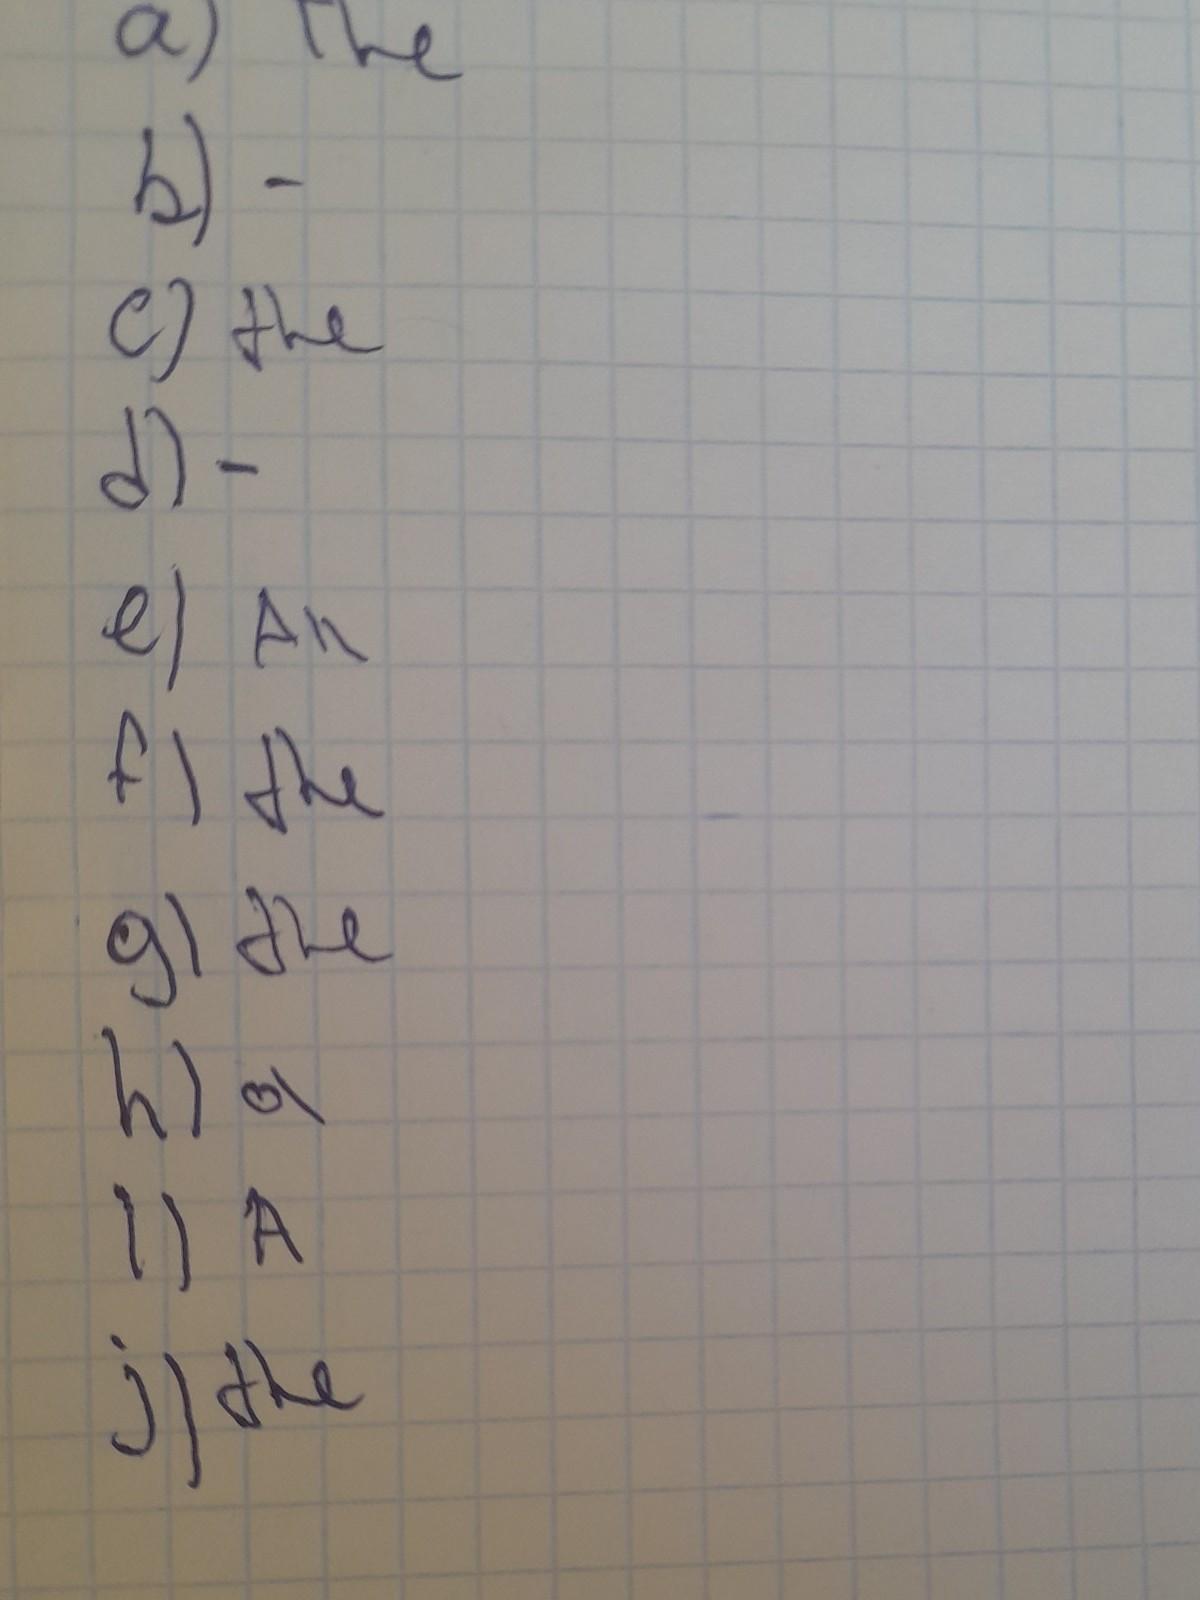 a) The
b) -
c) the
d) -
e) An
f) the
g) the
h) a
i) A
j) the